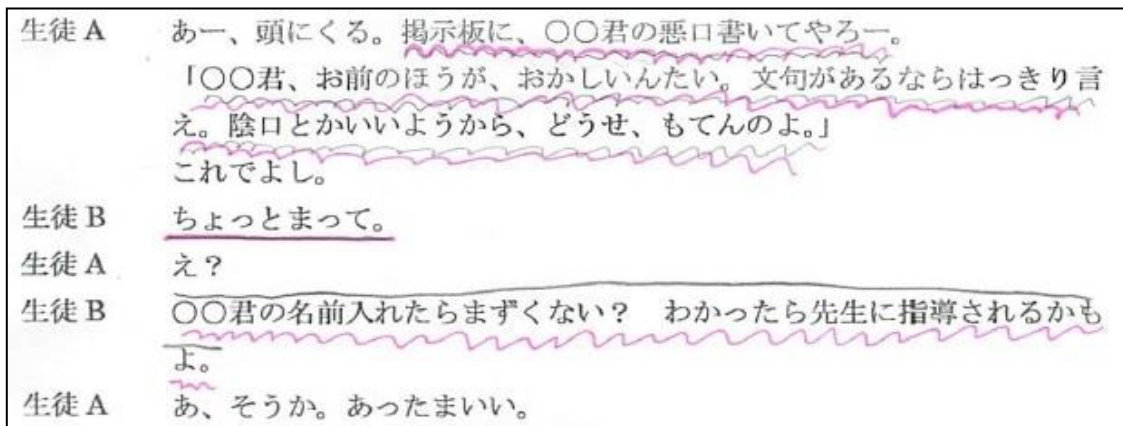 生徒A　あー、頭にくる。掲示板に、○○君の悪口書いてやろー。
「○○君、お前のほうが、おかしいんたい。文句があるならはっきり言
え。陰口とかいいようから、どうせ、もてんのよ。」
これでよし。
生徒B　ちょっとまって。
生徒A　え？
生徒B　○○君の名前入れたらまずくない？　わかったら先生に指導されるかも
よ。
生徒A　あ、そうか。あったまいい。